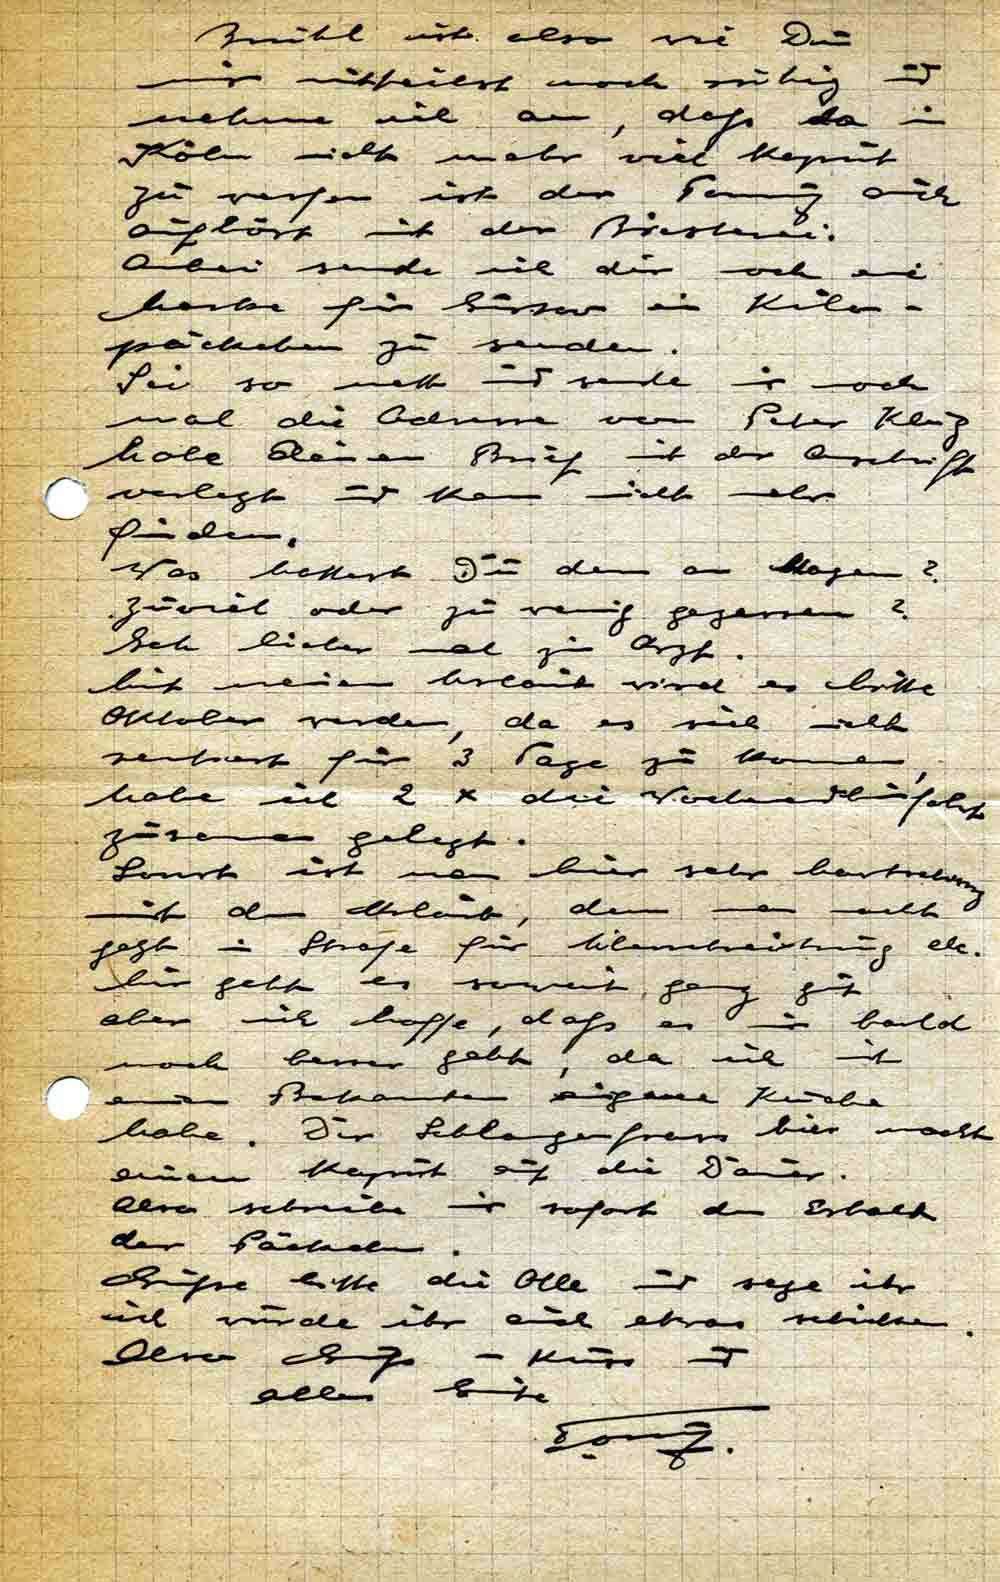 Brühl ist also wie Du
mir mitteilst noch ruhig und
nehme ich an, dass da in
Köln nicht mehr viel kaputt
zu werfen ist der Tommy auch
aufhört mit der
Anbei sende ich dir noch eine
Marke für ein Kilo-
päckchen zu senden.
Sei so nett und sende mir noch
mal die Adresse von Peter
habe Deinen Brief mit der Anschrift
verlegt und kann nicht mehr
finden.
Was hattest Du denn am Magen?
Zuviel oder zu wenig gegessen?
Geh lieber mal zum Arzt.
Mit meinem Urlaub wird es Mitte
Oktober werden, da es sich nicht
rentiert für 3 Tage zu kommen,
habe ich 2 x die
zusammen gelegt.
Sonst ist man hier sehr
mit dem Urlaub, denn man
jetzt in Strafe für etc.
Mir geht es soweit ganz gut
aber ich hoffe, dass es mir bald
noch besser geht, da ich mit
einem Bekannten eigene Küche
habe. Der Schlangenfrass hier macht
einen kaputt auf die Dauer.
Also schreibe mir sofort den Erhalt
der Päckchen.
Grüsse bitte die Olle und sage ihr
ich würde ihr auch etwas schicken.
Also Gruß - Kuss und
alles Gute
Tony.